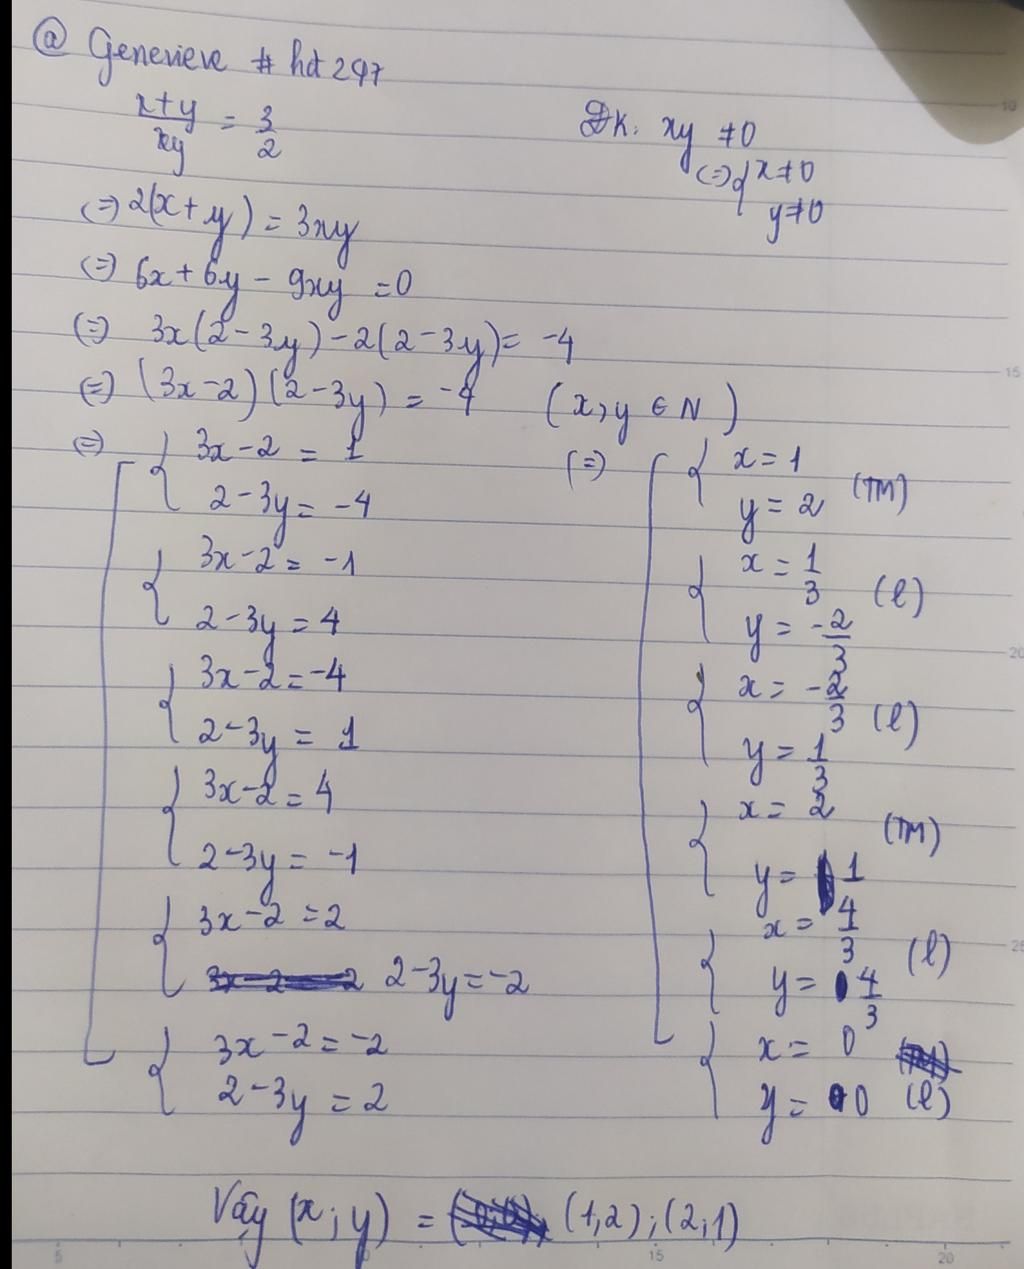 @ Genevieve # hd 297
x+y/xy = 3/2
ĐK: xy ≠0
(=) { x≠0
y≠0
(=) 2(x+y) = 3xy
(=) 6x+6y - 9xy =0
(=) 3x(2-3y)-2(2-3y)= -4
(=) (3x-2)(2-3y) = -4 (x,y ∈ N)
(=) [ { 3x-2 = 1
2-3y= -4
{ 3x-2 = -1
2-3y = 4
{ 3x-2=-4
2-3y = 1
{ 3x-2= 4
2-3y= -1
{ 3x-2 =2
2-3y=-2
{ 3x-2=-2
2-3y=2
(=) [ { x=1
y= 2 (TM)
{ x= 1/3 (l)
y= -2/3
{ x= -2/3 (l)
y= 1/3
{ x= 2 (TM)
y= 1
{ x= 4/3 (l)
y= 4/3
{ x= 0
y= 0 (l)
Vậy (x;y) = (1,2);(2;1)